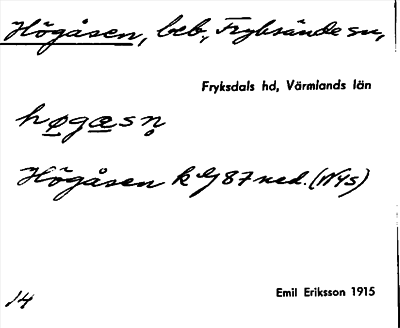 Högåsen, beb., Fryksände sn,
Fryksdals hd, Värmlands län
høgæsn̥
Högåsen 87 ned. (NYS)
14
Emil Eriksson 1915